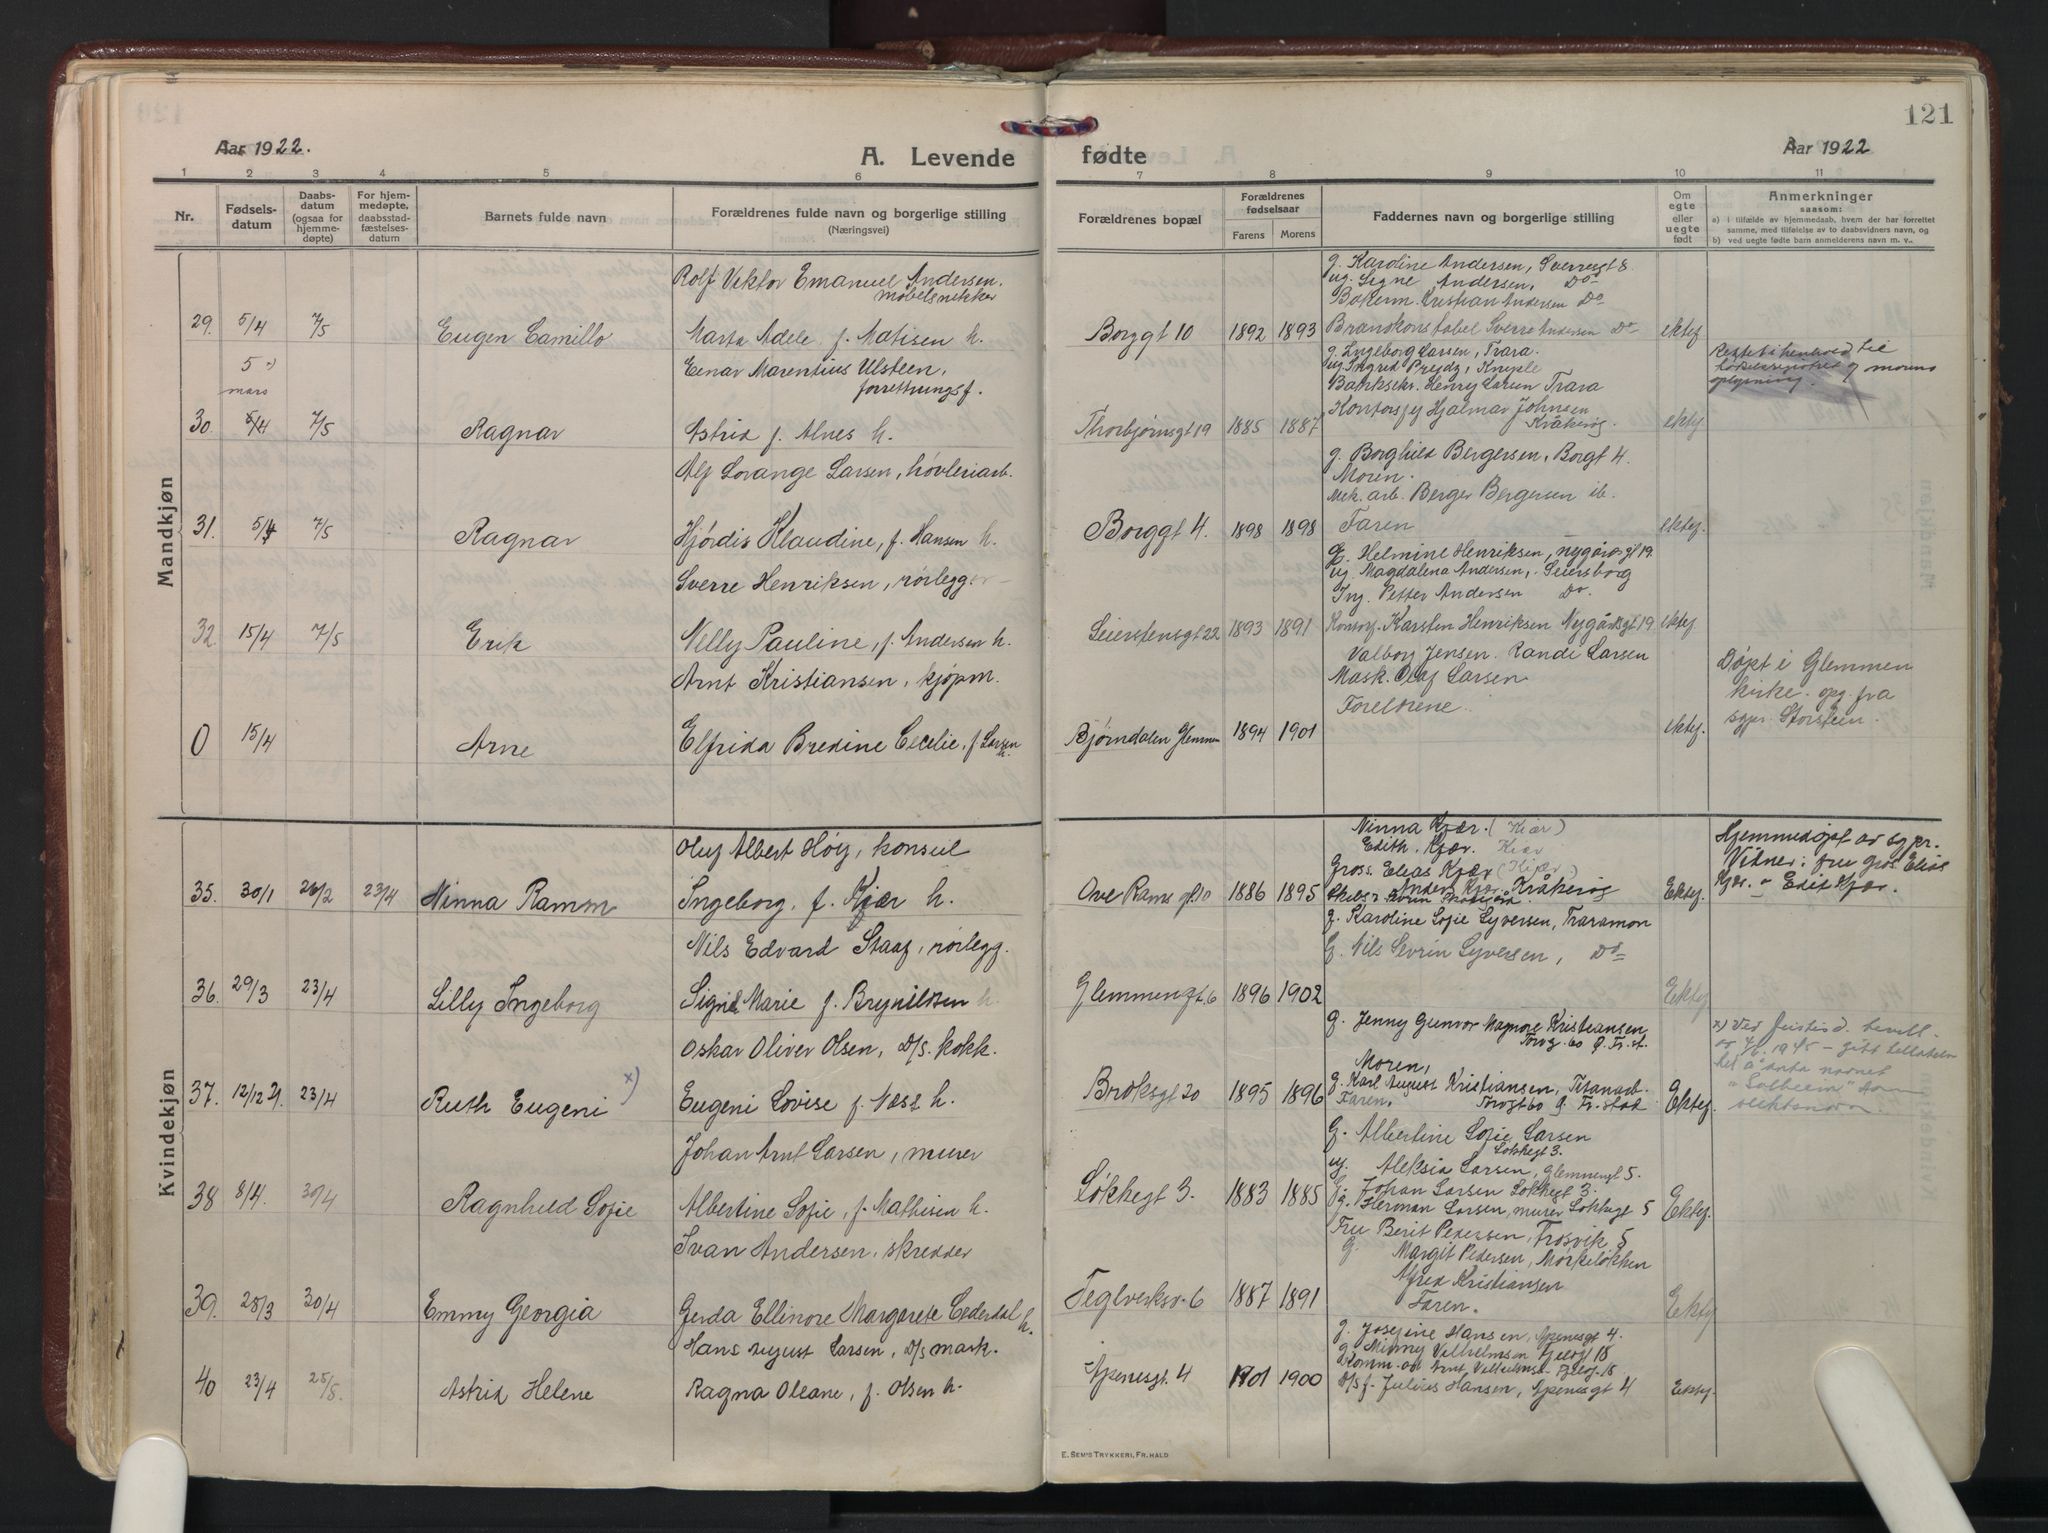 121
Aar 1922.
A. Levende
fødte
Aar 1922
1 2 3 4 5 6 7 8 9 10 11
Nr.
Fødsels-
datum
Daabs-
datum
(ogsaa for
hjemme-
døpte)
For hjem-
medøpte,
daabsstad-
fæstelses-
datum
Barnets fulde navn
Forældrenes fulde navn og borgerlige stilling
(Næringsvei)
Forældrenes bopæl
Forældrenes
fødselsaar
Farens Morens
Faddernes navn og borgerlige stilling
Om
egte
eller
uegte
født
Anmerkninger
saasom:
a) i tilfælde av hjemmedaab, hvem der har forrettet
samme, med tilføielse av to daabsvidners navn, og
b) ved uegte fødte barn anmelderens navn m. v..
Mandkjøn
Rolf Viktor Emanuel Andersen.
møbelsnekker
g. Karoline Andersen, Sverresgt 8.
ug. Signe Andersen, Do
Bokerm. Kristian Andersen Do
29. 5/4 7/5 Eugen Camillo Marta Adele f. Matisen h. Borggt 10 1892 1893 Branskonstabel Sverre Andersen Do ektef
5 x)
mars
Einar Marentius Ulsteen,
forretningsf.
g. Ingeborg Larsen, Trara.
ug. Ingrid Prydz, Kniple
Banksekr. Henry Larsen Trara
Rettet i henhold til
fødselsregistret og morens
oplysning.
30. 5/4 7/5 Ragnar Astrid f. Alnes h. Thorbjørnsgt 19 1885 1887 Kontorsjef Hjalmar Johnsen
Kråkerøy. ektef.
Alf Lorange Larsen, høvleriarb.
g. Borghild Bergersen, Borgt 4.
Moren.
Mek. arb. Berger Bergersen ib.
31. 5/4 7/5 Ragnar Hjørdis Klaudine, f. Hansen h. Borggt 4. 1898 1898 Faren ektef.
Sverre Henriksen, rørlegger
g. Helmine Henriksen, Nygårdsgt 19.
ug. Magdalena Andersen, Seiersborg
Ing. Petter Andersen Do.
32. 15/4 7/5 Erik Nelly Pauline, f. Andersen h. Seierstensgt 22 1893 1891 Kontorf. Karsten Henriksen Nygårdsgt 19 ektef.
Arnt Kristiansen, kjøpm.
Valborg Jensen. Randi Larsen
Mask. Olaf Larsen
Foreldrene.
Døpt i Glemmen
kirke. opg. fra
sgpr. Storsteen.
0 15/4 Arne Elfrida Bredine Cecilie, f Larsen h. Bjørndalen Glemmen 1894 1901 ektef.
Kvindekjøn
Oluf Albert Høiy, konsul
Ninna Kjær. (Kiær)
Edith Kjær. Kiær
Gross. Elias Kjær (Kiær)
Hjemmedøpt av sgpr.
Vitner: fru gros Elise
Kjær. o Edit Kjær.
35. 30/1 26/2 23/4 Ninna Ramm Ingeborg, f. Kjær h. Ove Rams gt. 10 1886 1895 Anders Kjær, Kråkerøy Ektef.
Nils Edvard Staaf, rørlegg.
g. Karoline Sofie Syversen, Traramon
g. Nils Sevrin Syversen, Do
36. 29/3 23/4 Lilly Ingeborg Signe Marie f. Brynildsen h Glemmengt. 6 1896 1902 Ektef
Oskar Oliver Olsen, D/S. kokk.
g. Jenny Gunvor Magnore Kristiansen,
Torvg. 60 Ø. Fr.st.
Moren,
x) Ved Justisd. bevill.
av 4/6. 1945 – gitt tillatelse
til å anta navnet
"Solheim" som
slektsnavn.
37. 12/12 21. 23/4 Ruth Eugeni x) Eugeni Lovise f. Næss h. Broksgt 20 1895 1896 g. Karl August Kristiansen, Titanarb. Ektef.
Faren. Torvgt 60 Ø. Fr. stad
Johan Arnt Larsen, murer
g. Albertine Sofie Larsen
Løkkegt 3.
ug. Aleksia Larsen, Glemmengt 5.
38 8/4. 30/4 Ragnhild Sofie Albertine Sofie, f. Mathisen h. Løkkegt 3. 1883 1885 g. Johan Larsen Løkkegt 3. Ektef.
g. Herman Larsen, murer Løkkegt 5
Ivan Andersen, skredder
Fru Berit Pedersen, Trosvik 5
g. Margit Pedersen, Mørkeløkken
Alfred Kristiansen
39. 28/3 30/4 Emmy Georgia Gerda Ellinore Margarete Cederdal h. Teglverksv. 6 1887 1891 Faren. Ektef
Hans August Larsen, D/S mask.
g. Josefine Hansen, Apenesgt 4.
g. Minny Vilhelmsen Fjelgt 18
Komm. arb Arnt Vilhelmsen Fjelgt. 18
40 23/4 25/5. Astrid Helene Ragna Oleane, f. Olsen h. Apenesgt 4 1901 1900 D/S f. Julius Hansen, Apenesgt 4 Ektef.
E. SEM'S TRYKKERI, FR.HALD